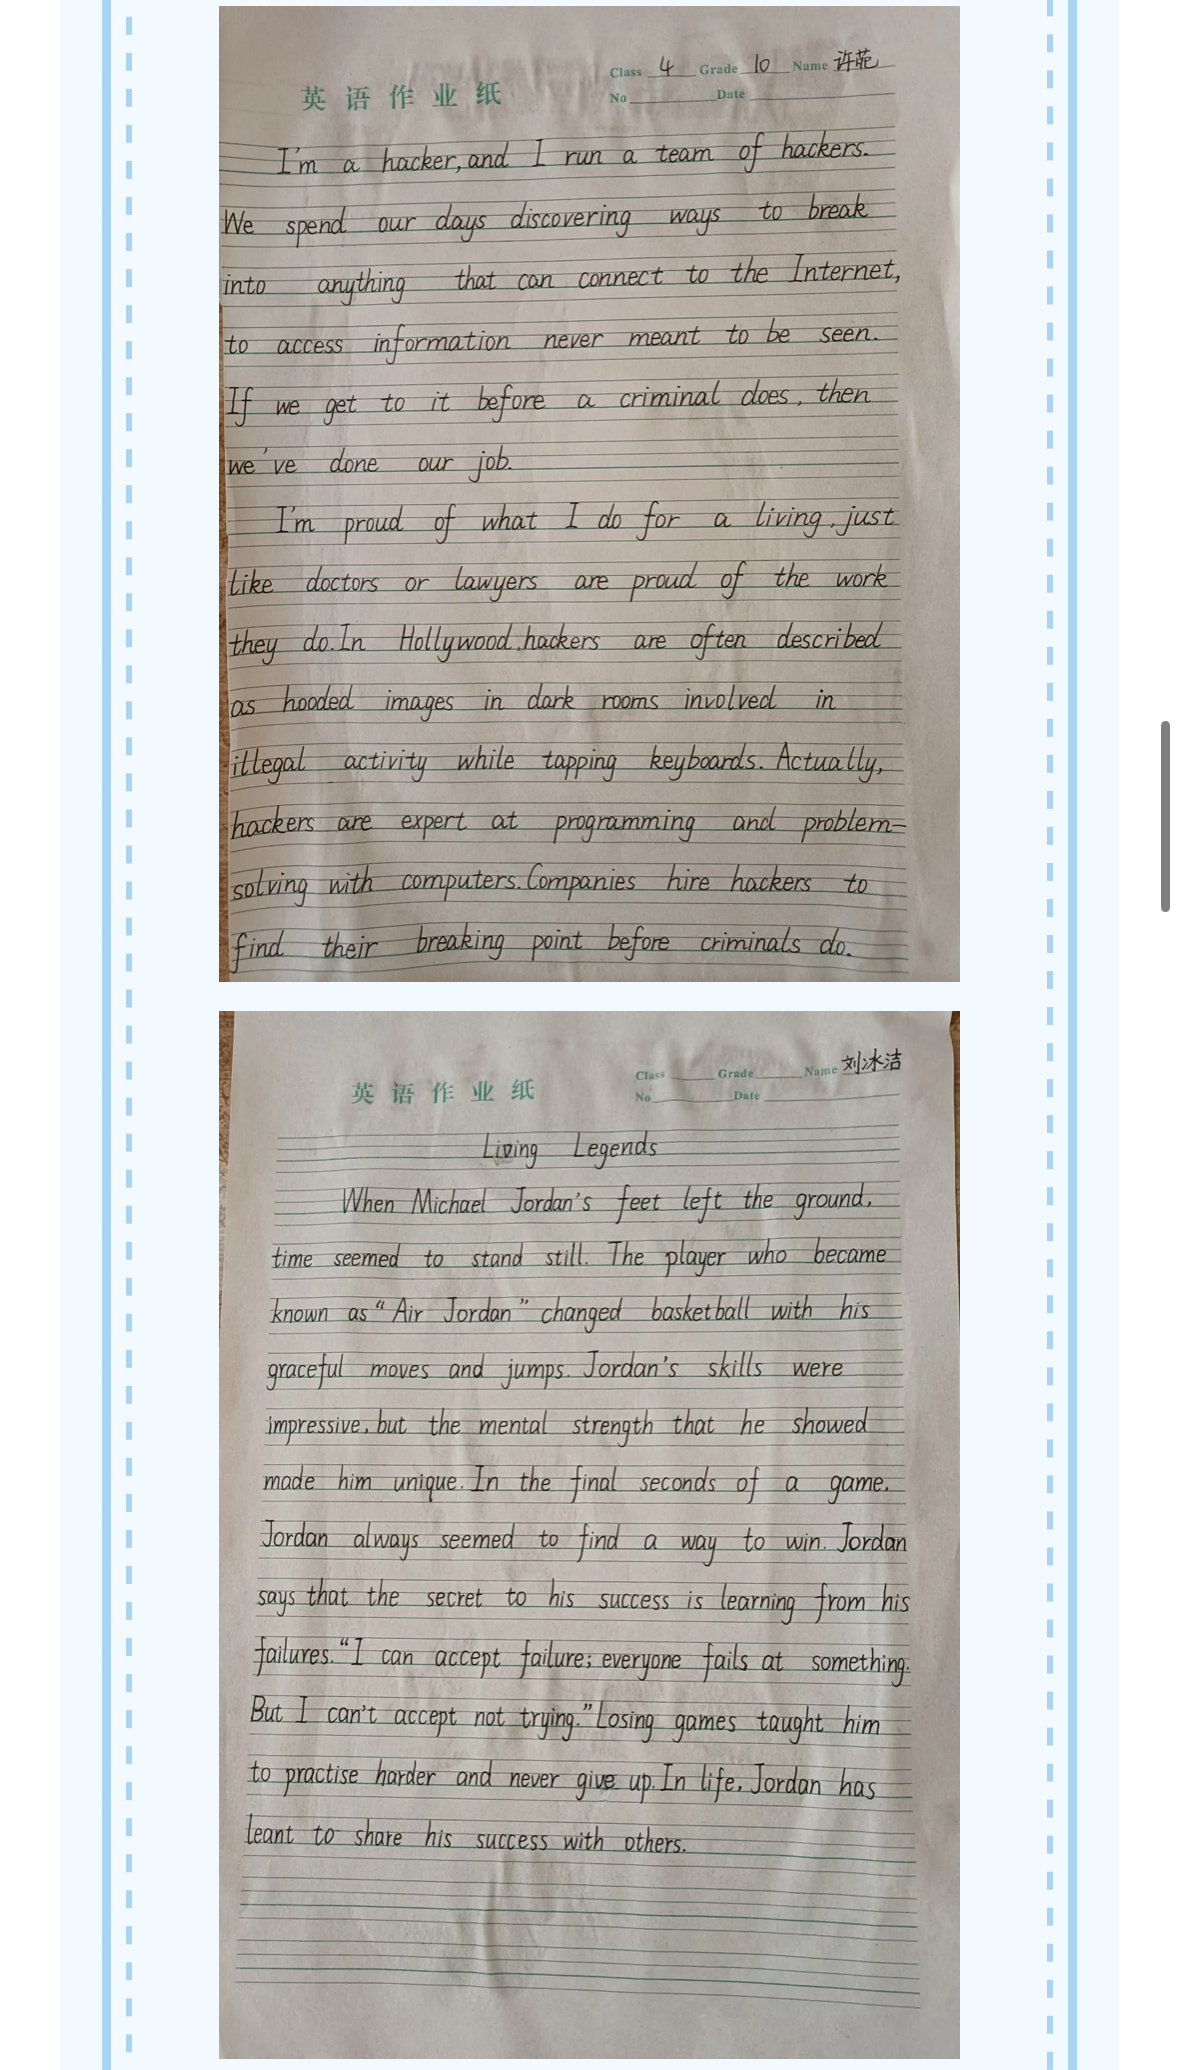 Class 4 Grade 10 Name 许苑
英语作业纸
No Date
I'm a hacker, and I run a team of hackers.
We spend our days discovering ways to break
into anything that can connect to the Internet,
to access information never meant to be seen.
If we get to it before a criminal does, then
we've done our job.
I'm proud of what I do for a living, just
like doctors or lawyers are proud of the work
they do. In Hollywood, hackers are often described
as hooded images in dark rooms involved in
illegal activity while tapping keyboards. Actually,
hackers are expert at programming and problem-
solving with computers. Companies hire hackers to
find their breaking point before criminals do.
Class Grade Name 刘冰洁
英语作业纸
No Date
Living Legends
When Michael Jordan's feet left the ground,
time seemed to stand still. The player who became
known as "Air Jordan" changed basketball with his
graceful moves and jumps. Jordan's skills were
impressive, but the mental strength that he showed
made him unique. In the final seconds of a game,
Jordan always seemed to find a way to win. Jordan
says that the secret to his success is learning from his
failures. "I can accept failure; everyone fails at something.
But I can't accept not trying." Losing games taught him
to practise harder and never give up. In life, Jordan has
leant to share his success with others.